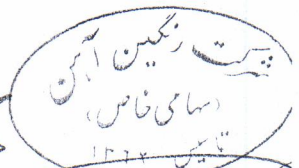 شرکت رنگین آهن
(سهامی خاص)
تاسیس ۱۳۶۷